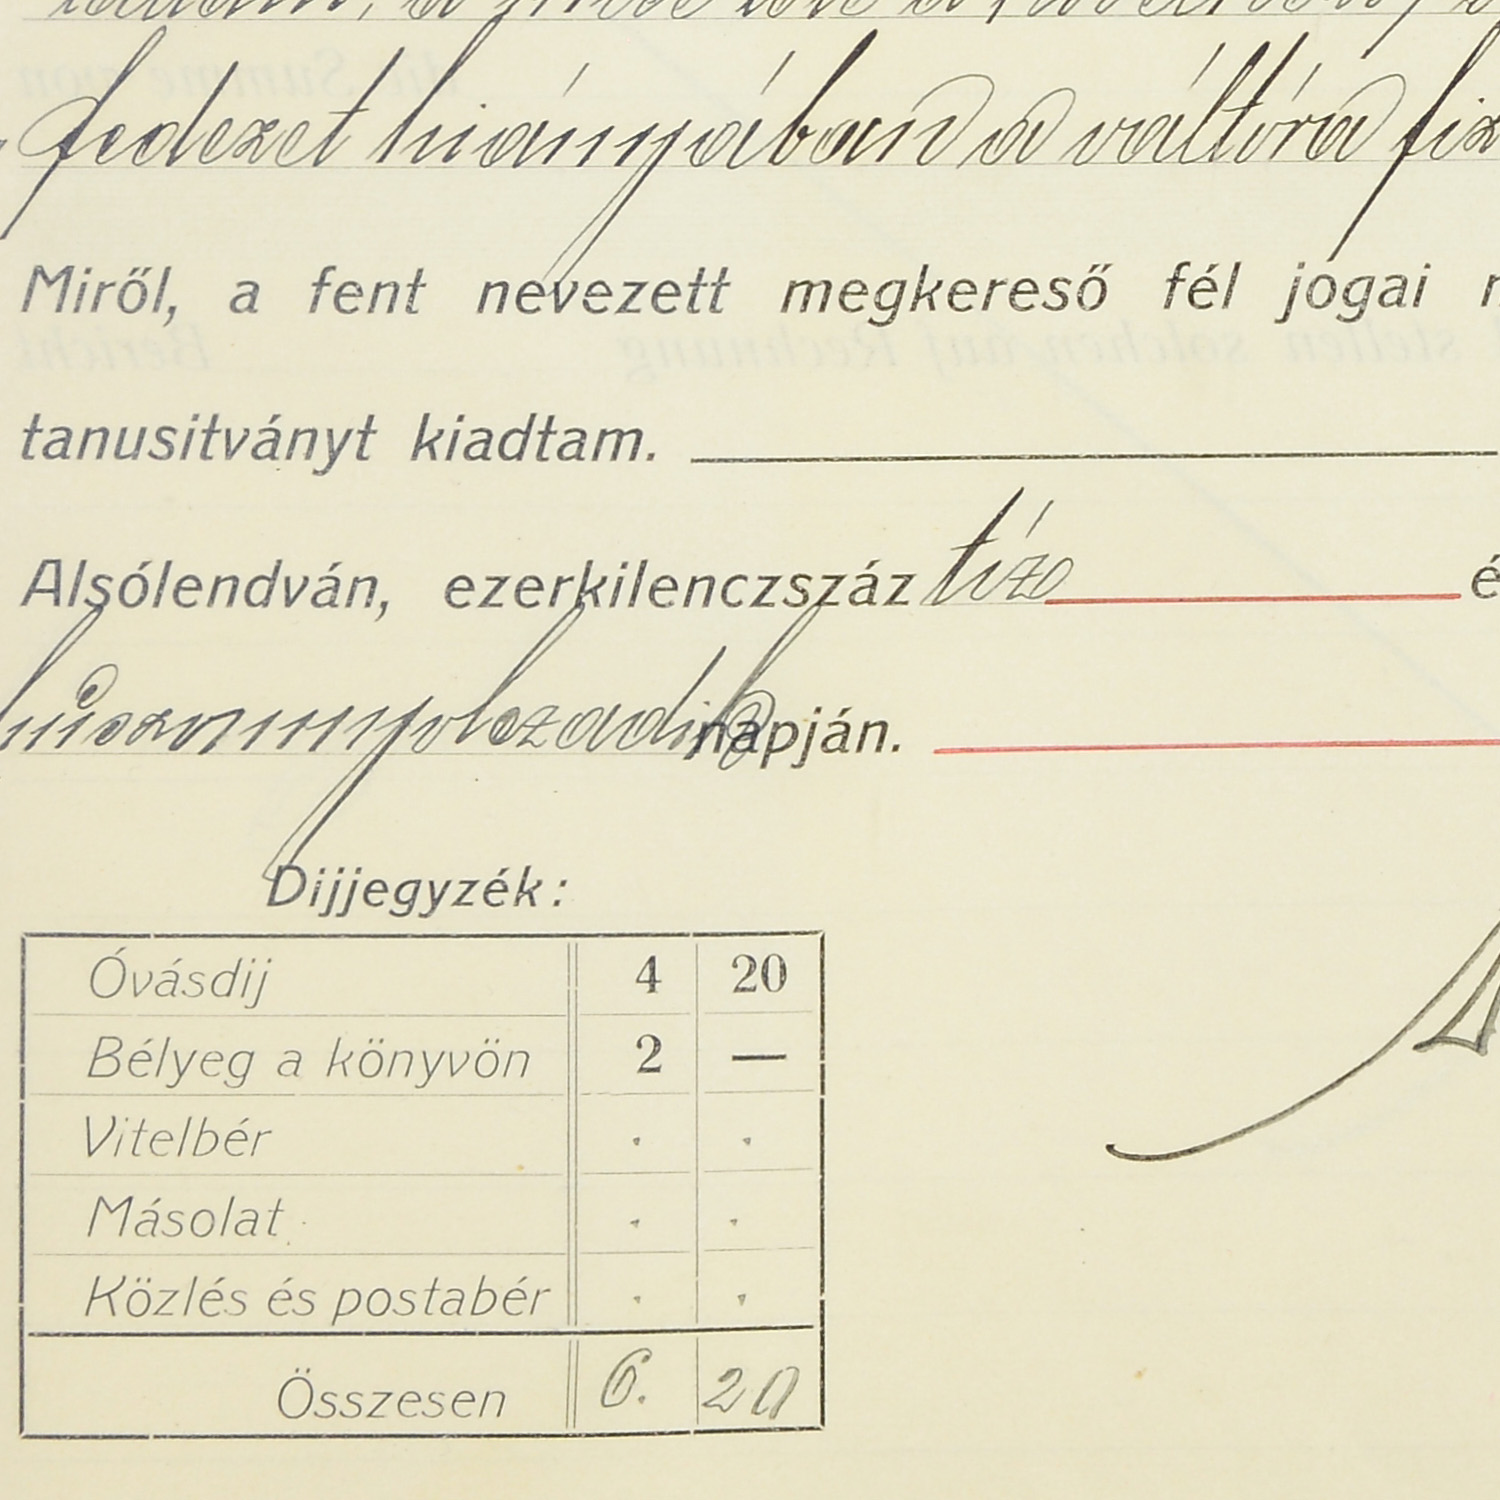 fedezet hiányában a váltóra
Miről, a fent nevezett megkereső fél jogai
tanusitványt kiadtam.
Alsólendván, ezerkilenczszáz tíz é
huszonnyolczadik napján.
Dijjegyzék:
Óvásdij 4 20
Bélyeg a könyvön 2 —
Vitelbér . .
Másolat . .
Közlés és postabér . .
Összesen 6. 20